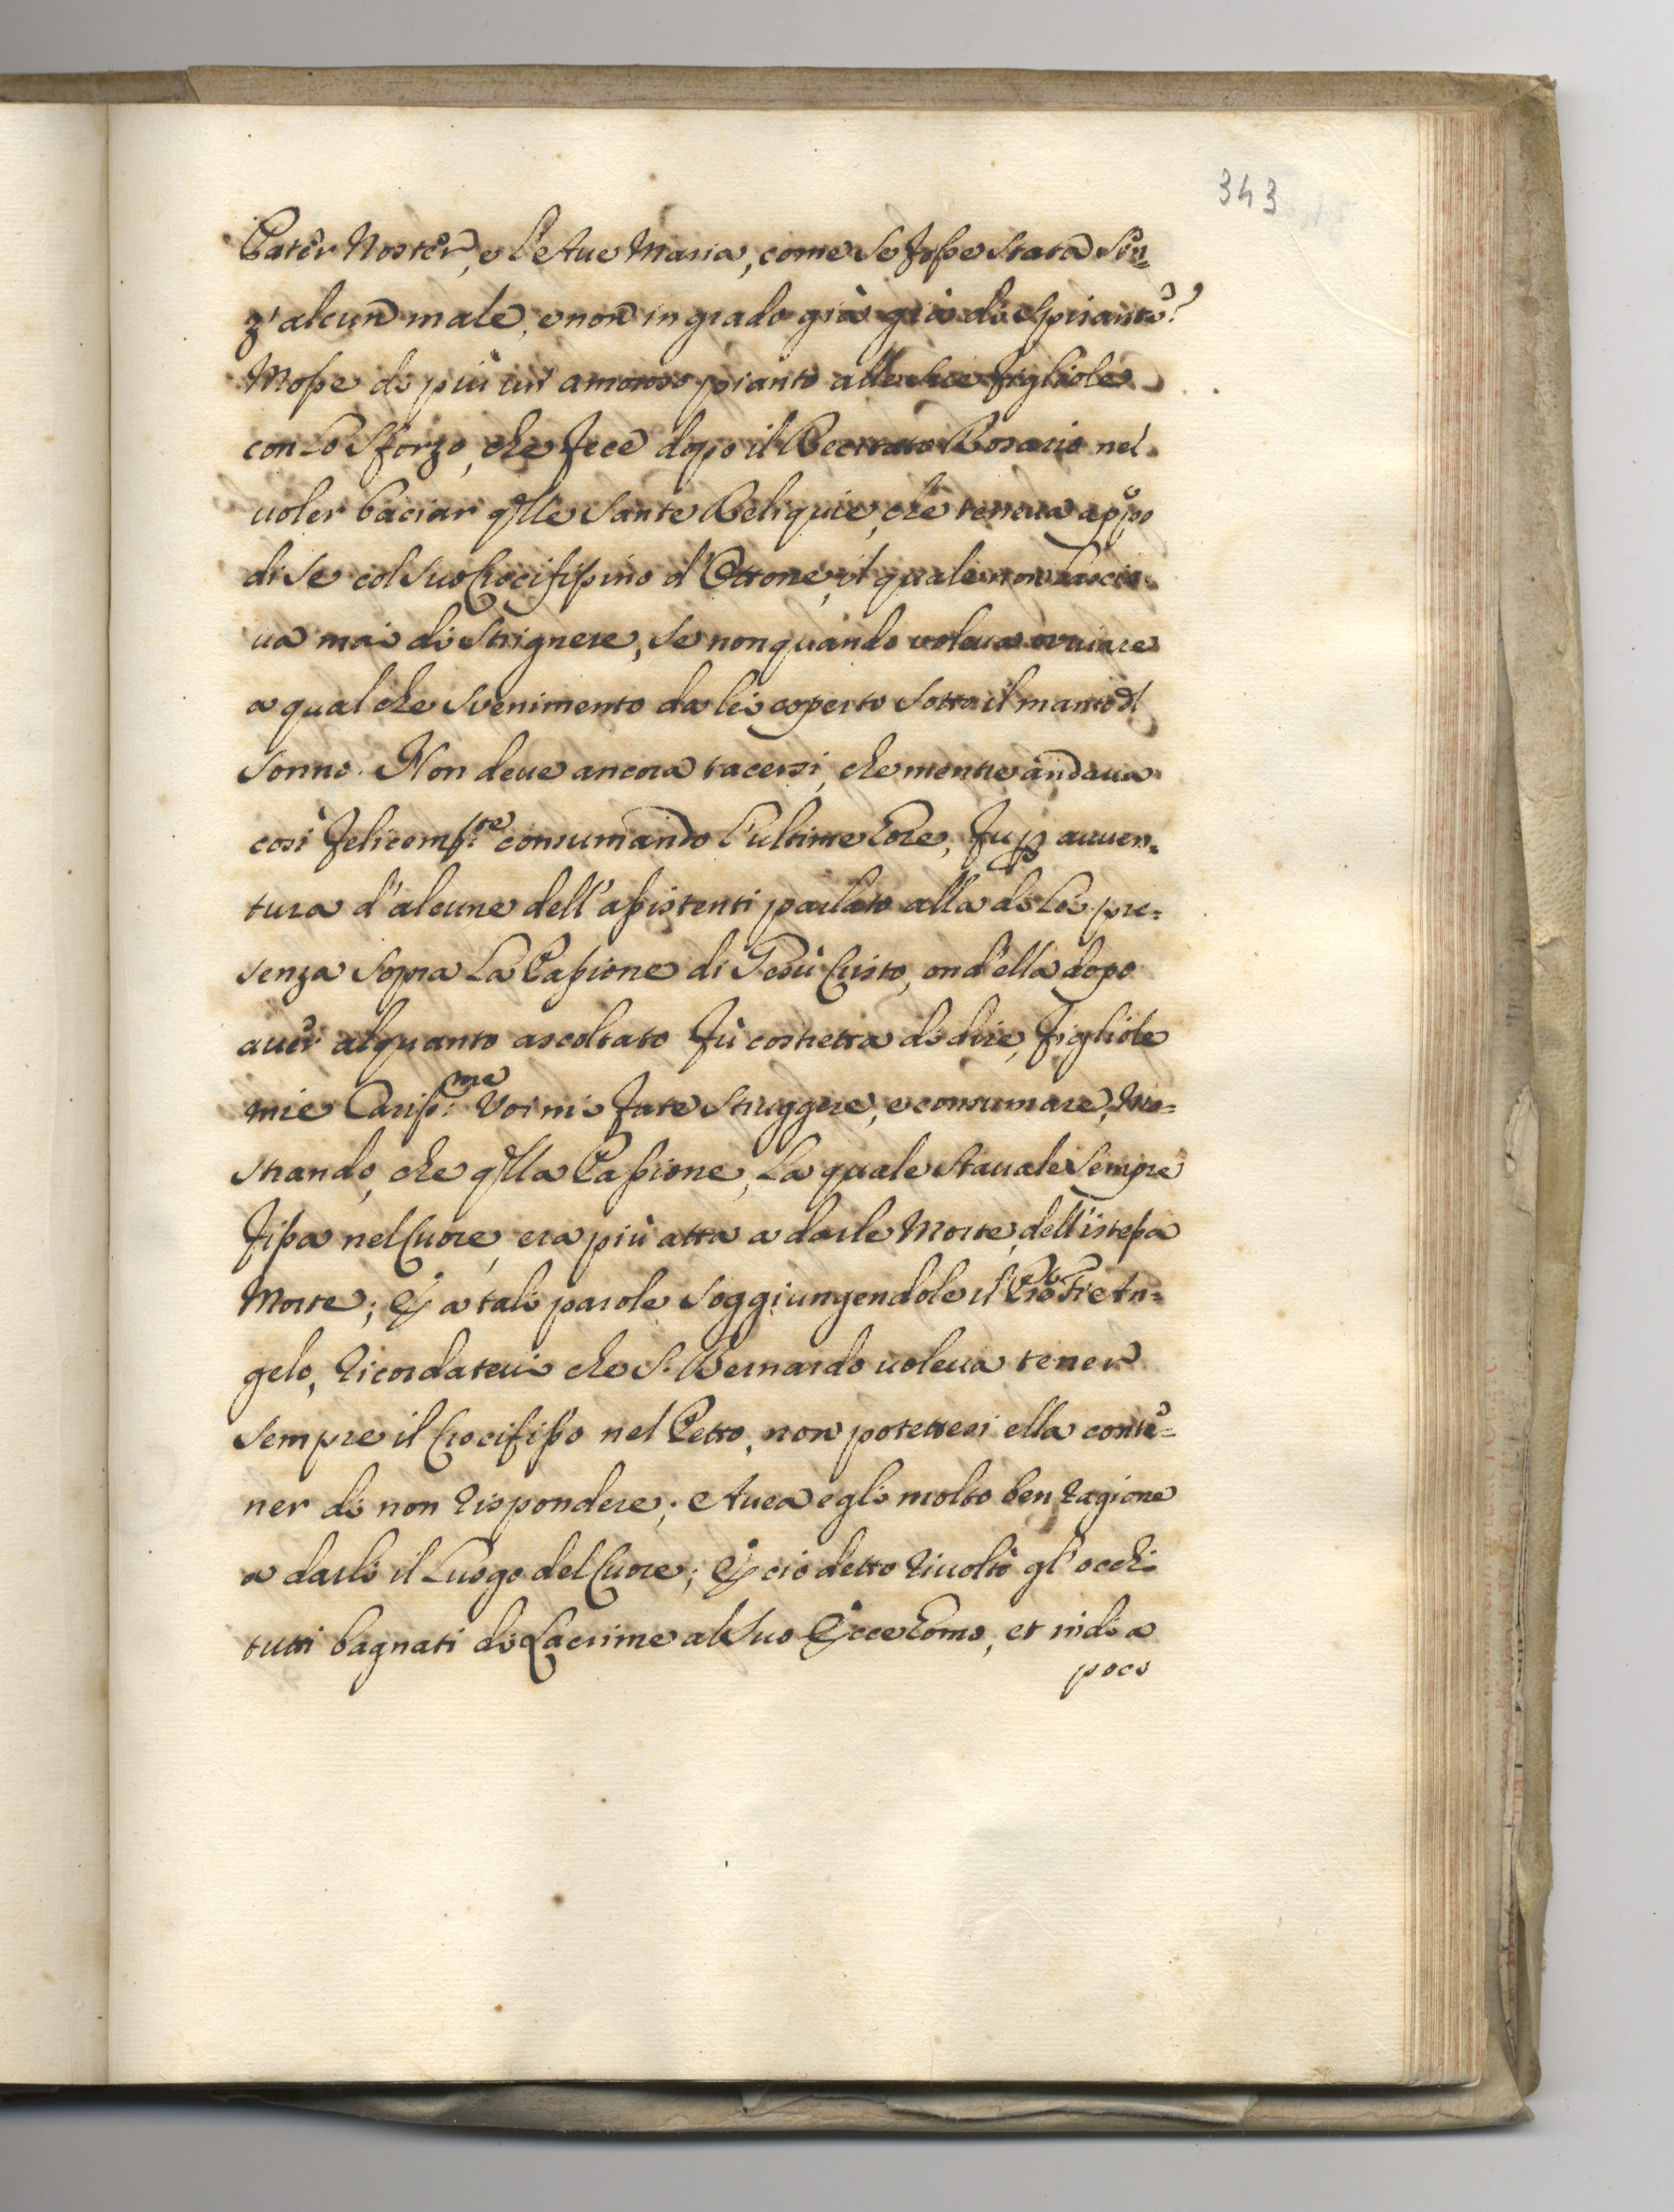 343
Pater Noster, e l'Aue Maria, come se fosse stata sen=
z' alcun male, e non in grado già già di spirante?
Mosse di più un' amoroso pianto alle sue figliole
con lo sforzo, che fece dopo il Recitato Rosario nel
uoler baciar q̃lle Sante Reliquie, che teneua app̊o
di se col suo Crocifissino d'Ottone, il quale non lascia=
ua mai di strignere, se non quando voleua ovuiare
a qualche svenimento da lei coperto sotto il manto dl
sonno. Non deue ancora tacersi, che mentre andaua
così felicem:te consumando l'ultime hore, fu p auuen=
tura d'alcune dell'assistenti parlato alla di lei pre=
senza sopra la Passione di Giesù Cristo, ond'ella dopo
auer alquanto ascoltato fù costretta di dire, figliole
mie Cariss:me Voi mi fate struggere, e consumare, Mo=
strando, che q̃lla Passione, la quale stauale sempre
fissa nel Cuore, era più atta a darle Morte, dell'istessa
Morte; Et a tali parole soggiungendole il Fr̃e An=
gelo, ricordateui che S. Bernardo uoleua tener
sempre il Crocifisso nel Petto, non potettesi ella conte=
ner di non rispondere; Auea egli molto ben ragione
a darli il Luogo del Cuore; Et ciò detto riuoltò gl'occhi
tutti bagnati di Lacrime al suo Ecce homo, et indi a
poco